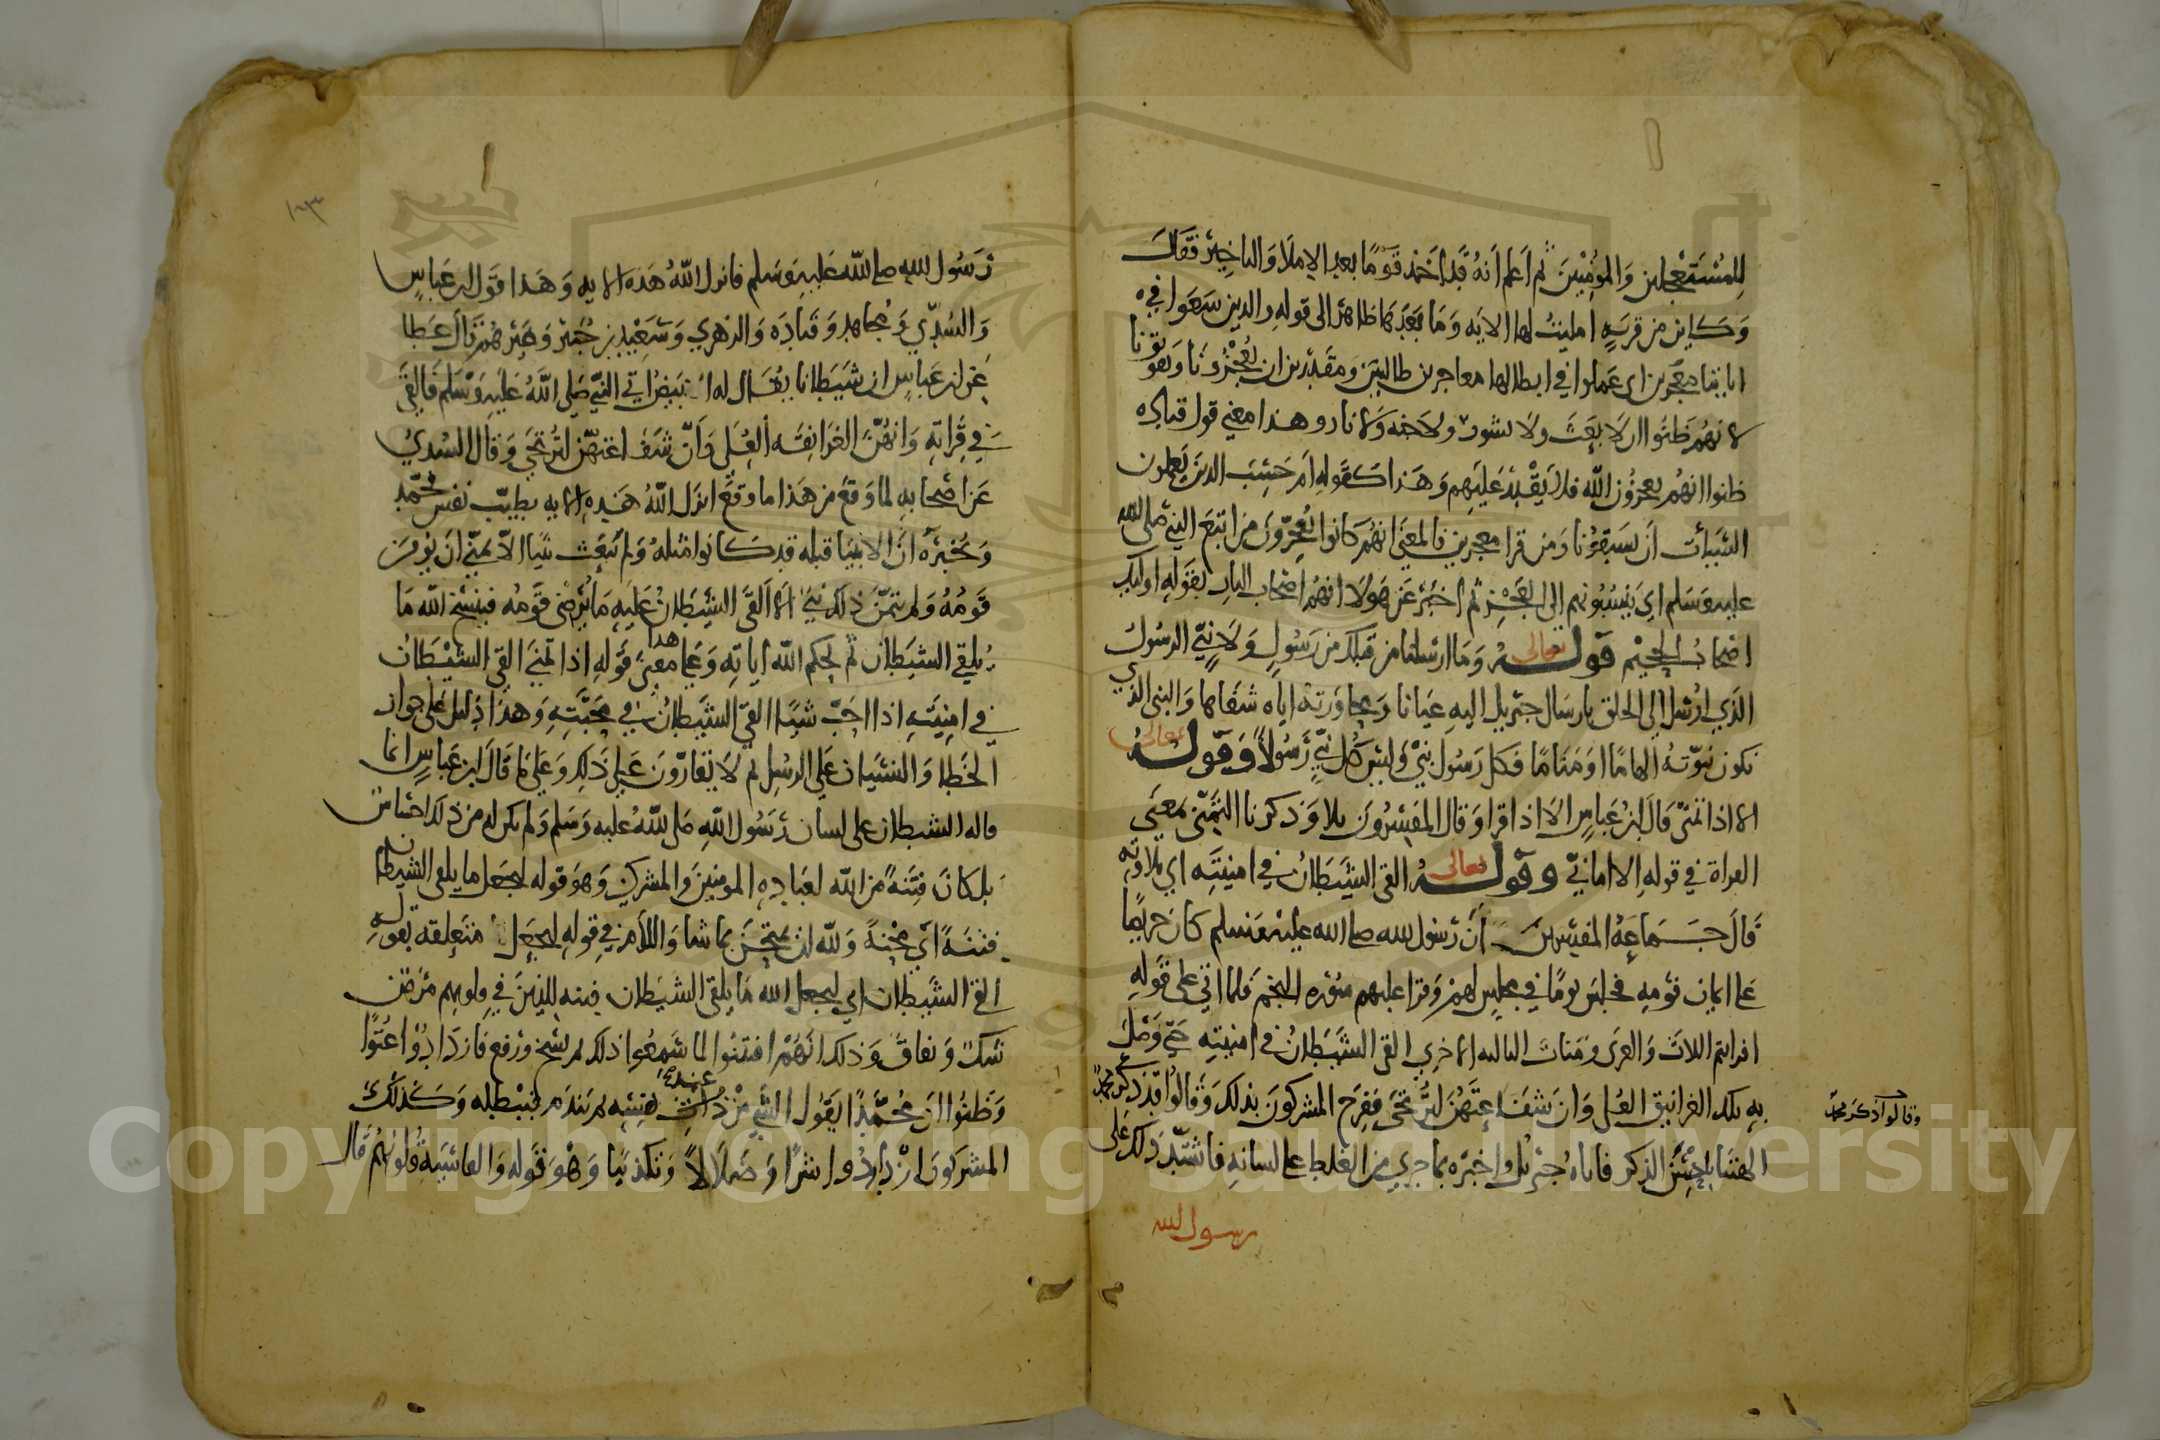 للمستعجلين والمؤمنين ثم اعلم أنه قد أخذ قوما بعد الاملا والتاخير فقال
وكاين من قرية امليت لها الاية وما بعدها ظاهر الى قوله والذين سعوا في
اياتنا معجزين اى عملوا في ابطالها معاجزين ظانين ومقدرين ان يعجزونا ويفوتونا
لانهم ظنوا ان لا بعث ولا نشور ولا جنه ولا نار وهذا معنى قول قتاده
ظنوا انهم يعجزون الله فلا يقدر عليهم وهذا كقوله ام حسب الذين يعملون
السيات ان يسبقونا ومن قرا معجزين فالمعنى انهم كانوا يعجزون من اتبع النبي صلى الله
عليه وسلم اي ينسبونهم الى العجز ثم اخبر عن هولا انهم اصحاب النار بقوله اوليك
اصحاب الجحيم قوله تعالى وما ارسلنا من قبلك من رسول ولا نبي الرسول
الذي ارسل الى الخلق بارسال جبريل اليه عيانا ومحاورته اياه شفاها والنبي الذي
تكون نبوته الهاما او مناما فكل رسول نبي وليس كل نبي رسولا وقوله تعالى
الا اذا تمنى قال ابن عباس الا اذا قرا وقال المفسرون تلا وذكرنا التمنى بمعنى
القراة في قوله الا اماني وقوله تعالى القى الشيطان في امنيته اي تلاوته
قال جماعة المفسرين ان رسول الله صلى الله عليه وسلم كان حريصا
على ايمان قومه فجلس يوما في مجلس لهم وقرا عليهم سوره النجم فلما اتى على قوله
افرايتم اللات والعزى ومنات الثالثه الاخرى القى الشيطان في امنيته حتى وصل
به تلك الغرانيق العلى وان شفاعتهن لترتجى ففرح المشركون بذلك وقالوا قد ذكر محمد
الهتنا باحسن الذكر فاتاه جبريل واخبره بما جرى من الغلط على لسانه فاشتد ذلك على
وقالوا ذكر محمد
رسول الله
١٨٣
رسول الله صلى الله عليه وسلم فانزل الله هذه الايه وهذا قول ابن عباس
والسدي ومجاهد وقتاده والزهري وسعيد بن جبير وغيرهم قال عطا
عن ابن عباس ان شيطانا يقال له الابيض اتى النبي صلى الله عليه وسلم فالقى
في قراته وانهن الغرانقه العلى وان شفاعتهن لترتجى وقال السدي
عن اصحابه لما وقع من هذا ما وقع انزل الله هذه الايه يطيب نفس محمد
ويخبره ان الانبيا قبله قد كانوا مثله ولم يبعث نبيا الا تمنى ان يومن
قومه ولم يتمن ذلك نبي الا القى الشيطان عليه ما يرضى قومه فينسخ الله ما
يلقي الشيطان ثم يحكم الله اياته وعلى هذا معنى قوله اذا تمنى القى الشيطان
في امنيته اذا احب شيا القى الشيطان في محبته وهذا دليل على جواز
الخطا والنسيان على الرسل ثم لا يقارون على ذلك وعلى ما قال ابن عباس انما
قاله الشيطان على لسان رسول الله صلى الله عليه وسلم ولم يكن له من ذلك احساس
بل كان فتنة من الله لعباده المومنين والمشركين وهو قوله ليجعل ما يلقى الشيطان
فتنة اى محنة ولله ان يمتحن بما شا واللام في قوله ليجعل متعلقه بقوله
القى الشيطان اي ليجعل الله ما يلقى الشيطان فتنه للذين في قلوبهم مرض
شك ونفاق وذلك انهم افتتنوا لما سمعوا ذلك ثم نسخ ورفع فازدادوا عتوا
وظنوا ان محمدا يقول الشي من عند نفسه ثم يندم فيبطله وكذلك
المشركون ازدادوا شرا وضلالا وتكذيبا وهو قوله والقاسية قلوبهم قال